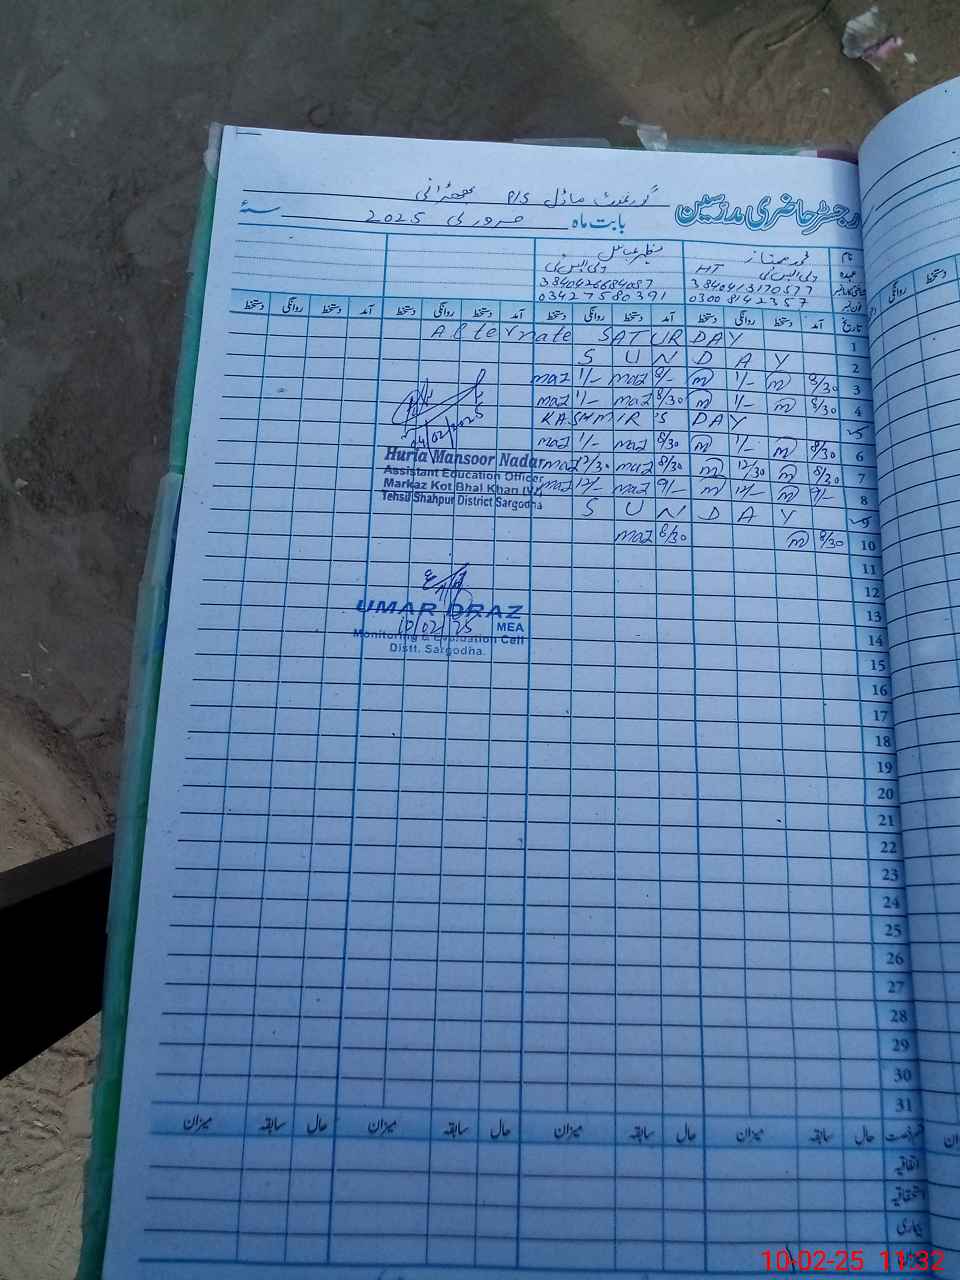 رجسٹر حاضری مدرسین گورنمنٹ ماڈل P/S
بابت ماہ فروری 2025 سنہ
نام محمد ممتاز مظہر عباس
عہدہ پی ایس ٹی HT پی ایس ٹی
3840413170577 3840426684087
03008142357 03427580391
تاریخ آمد دستخط روانگی دستخط آمد دستخط روانگی دستخط آمد دستخط روانگی دستخط آمد دستخط روانگی دستخط
1 Alternate SATURDAY
2 SUNDAY
3 8/30 m 1/- m 9/- maz 1/- maz
4 8/30 m 1/- m 8/30 maz 1/- maz
5 KASHMIR'S DAY
6 8/30 m 1/- m 8/30 maz 1/- maz
7 8/30 m 12/30 m 8/30 maz 12/30 maz
8 9/- m 12/- m 9/- maz 12/- maz
9 SUNDAY
10 8/30 m 8/30 maz
04/02/2025
Huria Mansoor Nadar
Assistant Education Officer
Markaz Kot Bhai Khan
Tehsil Shahpur District Sargodha
11
12
UMAR DRAZ
10/02/25 MEA
Monitoring & Evaluation Cell
Distt. Sargodha.
13
14
15
16
17
18
19
20
21
22
23
24
25
26
27
28
29
30
31
حال سابقہ میزان حال سابقہ میزان حال سابقہ میزان حال سابقہ میزان
اتفاقیہ
استحقاقیہ
بیماری
10-02-25 11:32